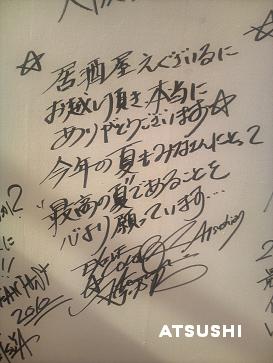 居酒屋えぐざいるに
お越し頂き本当に
ありがとうございます☆
今年の夏もみなさんにとって
"最高の夏"であることを
心より願っています…
EXILE
Atsushi
2010
ATSUSHI